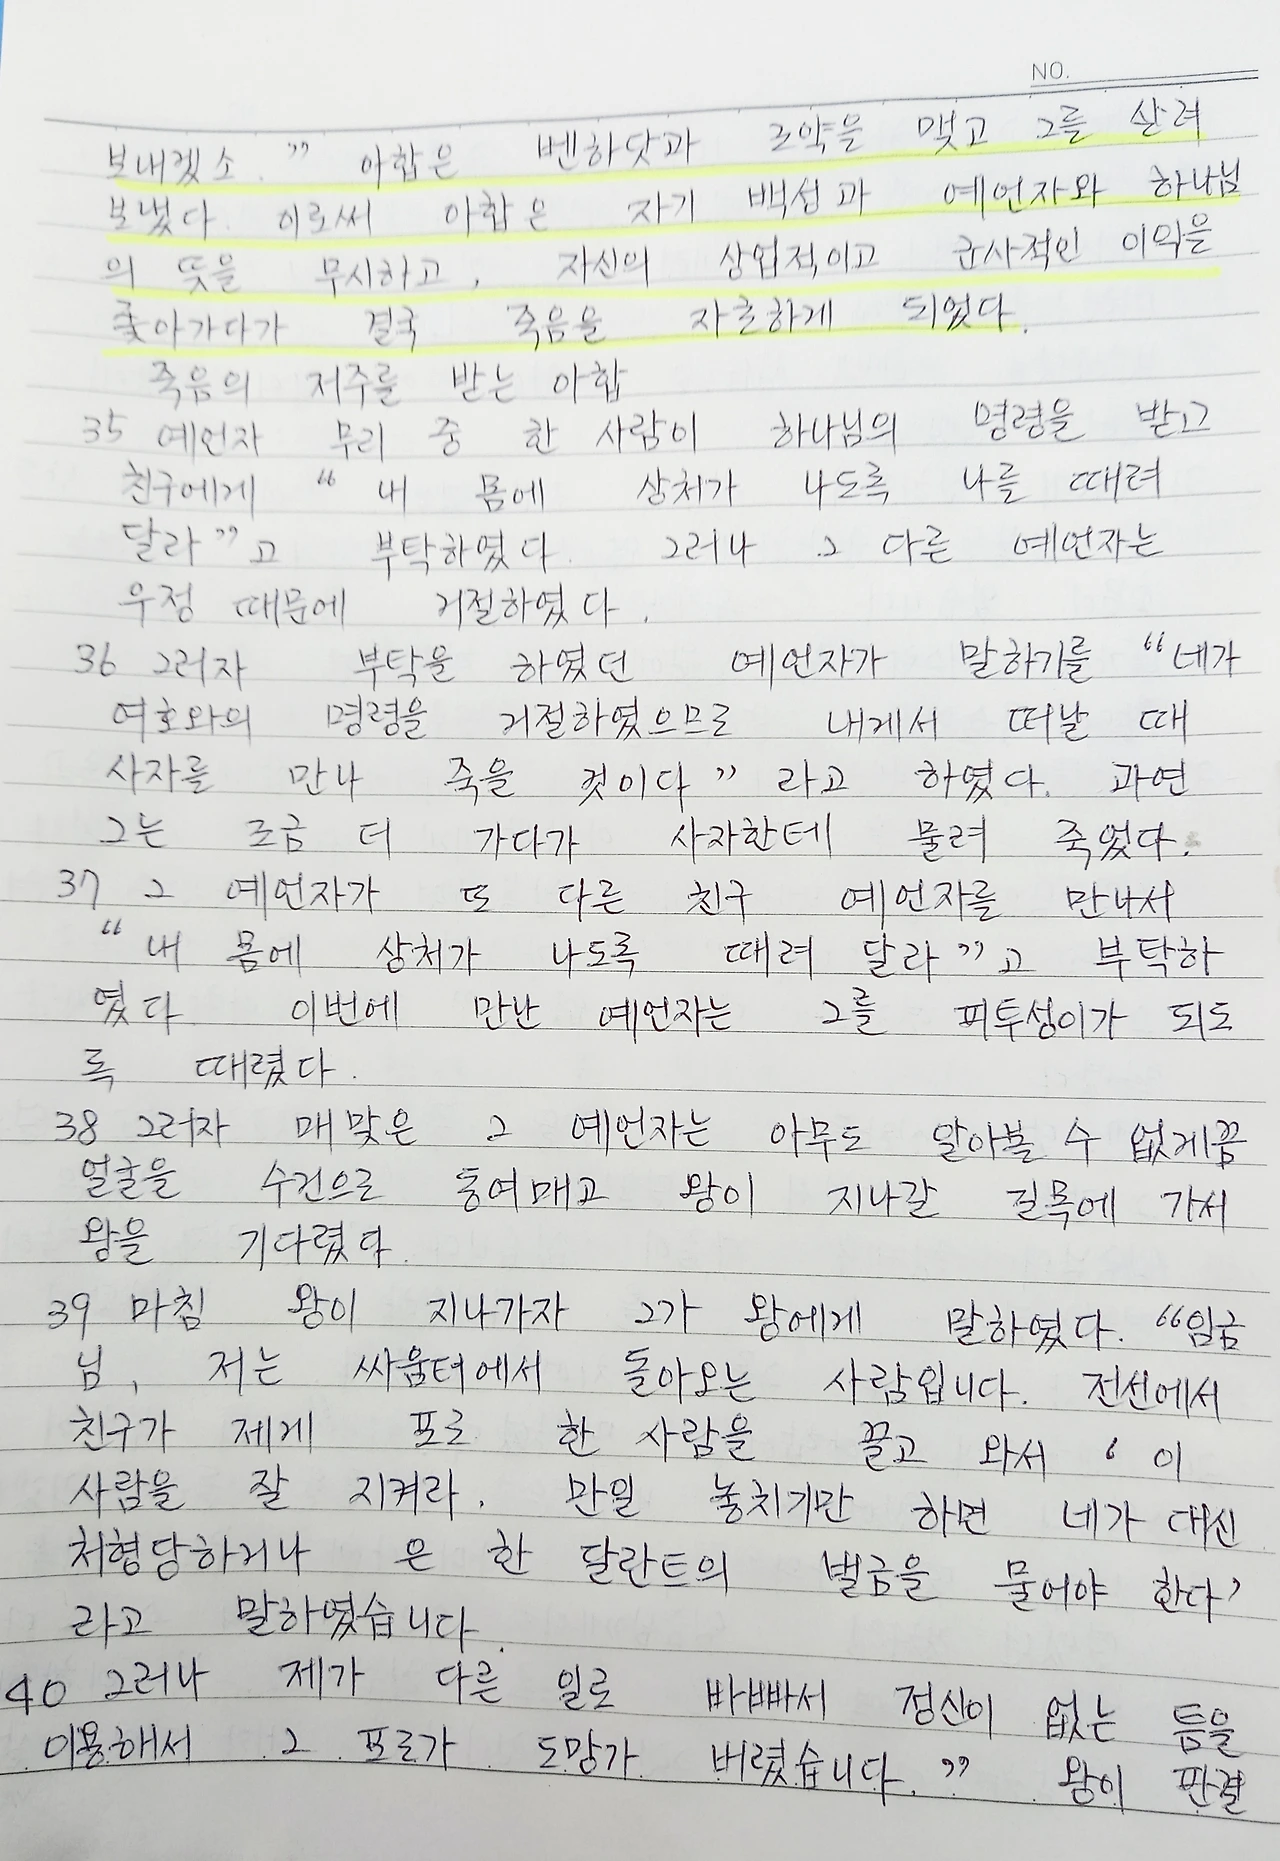 NO.
보내겠소.” 아합은 벤하닷과 조약을 맺고 그를 살려
보냈다. 이로써 아합은 자기 백성과 예언자와 하나님
의 뜻을 무시하고, 자신의 상업적이고 군사적인 이익을
좇아가다가 결국 죽음을 자초하게 되었다.
죽음의 저주를 받는 아합
35 예언자 무리 중 한 사람이 하나님의 명령을 받고
친구에게 “내 몸에 상처가 나도록 나를 때려
달라”고 부탁하였다. 그러나 그 다른 예언자는
우정 때문에 거절하였다.
36 그러자 부탁을 하였던 예언자가 말하기를 “네가
여호와의 명령을 거절하였으므로 내게서 떠날 때
사자를 만나 죽을 것이다” 라고 하였다. 과연
그는 조금 더 가다가 사자한테 물려 죽었다.
37 그 예언자가 또 다른 친구 예언자를 만나서
“내 몸에 상처가 나도록 때려 달라”고 부탁하
였다 이번에 만난 예언자는 그를 피투성이가 되도
록 때렸다.
38 그러자 매맞은 그 예언자는 아무도 알아볼 수 없게끔
얼굴을 수건으로 동여매고 왕이 지나갈 길목에 가서
왕을 기다렸다.
39 마침 왕이 지나가자 그가 왕에게 말하였다. “임금
님, 저는 싸움터에서 돌아오는 사람입니다. 전선에서
친구가 제게 포로 한 사람을 끌고 와서 ‘이
사람을 잘 지켜라. 만일 놓치기만 하면 네가 대신
처형당하거나 은 한 달란트의 벌금을 물어야 한다’
라고 말하였습니다.
40 그러나 제가 다른 일로 바빠서 정신이 없는 틈을
이용해서 그 포로가 도망가 버렸습니다.” 왕이 판결